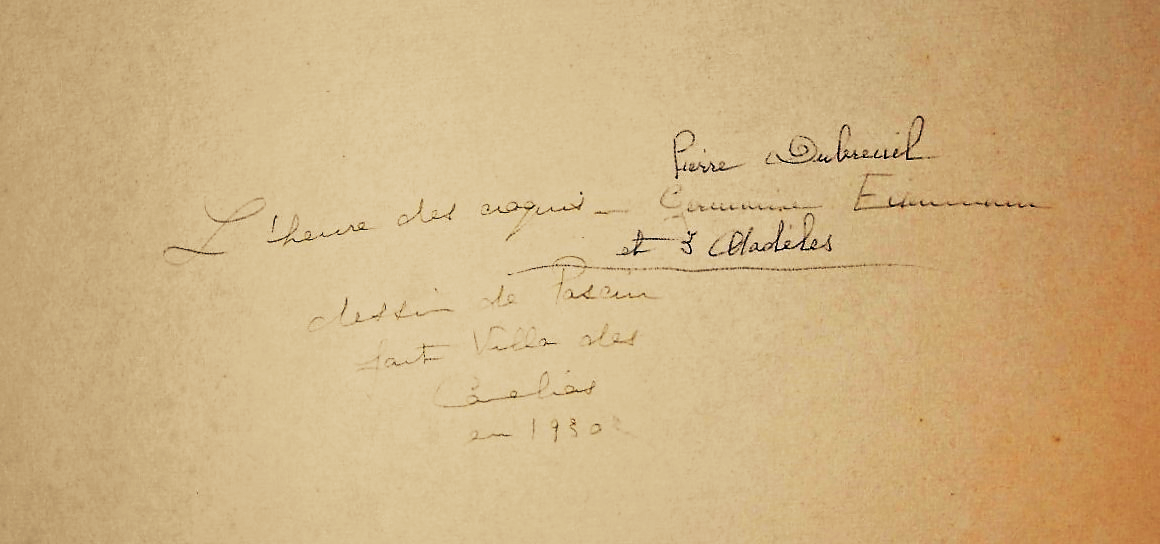 Pierre Dubreuil
L'heure des croquis - Germaine Eisenmann
et 3 Modèles
dessin de Pascin
fait Villa des
Camélias
en 1930